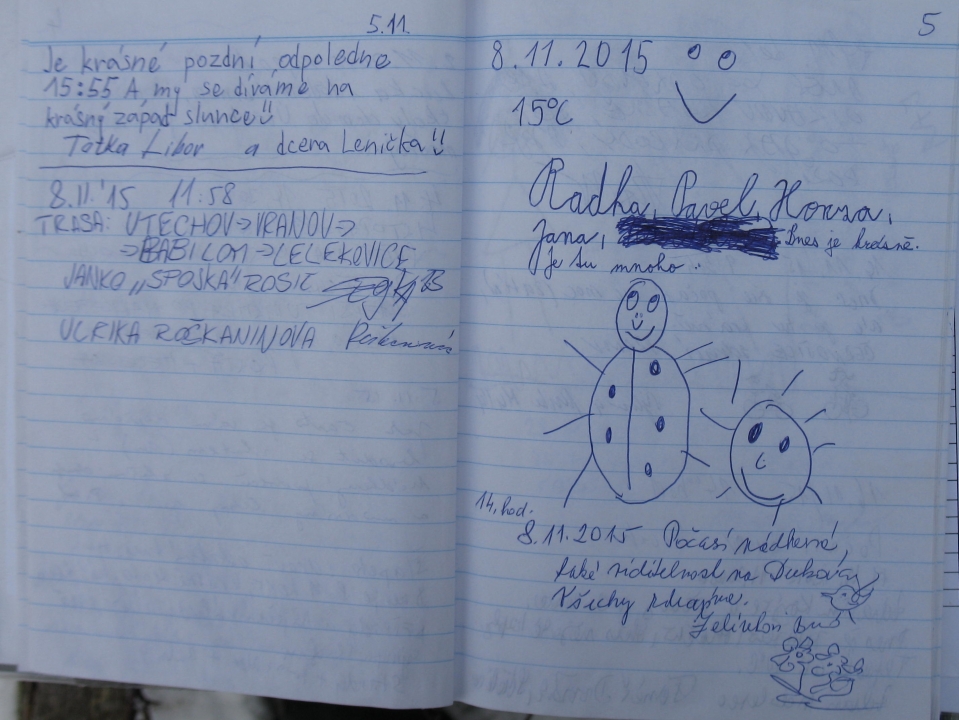 5.11.
Je krásné pozdní odpoledne
15:55 A my se díváme na
krásný západ slunce!!
Totka Libor a dcera Lenička!!
8.11.'15 11:58
TRASA: ÚTĚCHOV→VRANOV→
→BABILOM→LELEKOVICE
JANKO „SPOJKA" ROSIC
ULRIKA ROČKANINOVA
5
8.11.2015
15°C
Radha, Pavel, Honza,
Jana, Dnes je krásně.
Je tu mnoho
14. hod.
8.11.2015 Počasí nádherné,
také viditelnost na
Všechny zdravíme.